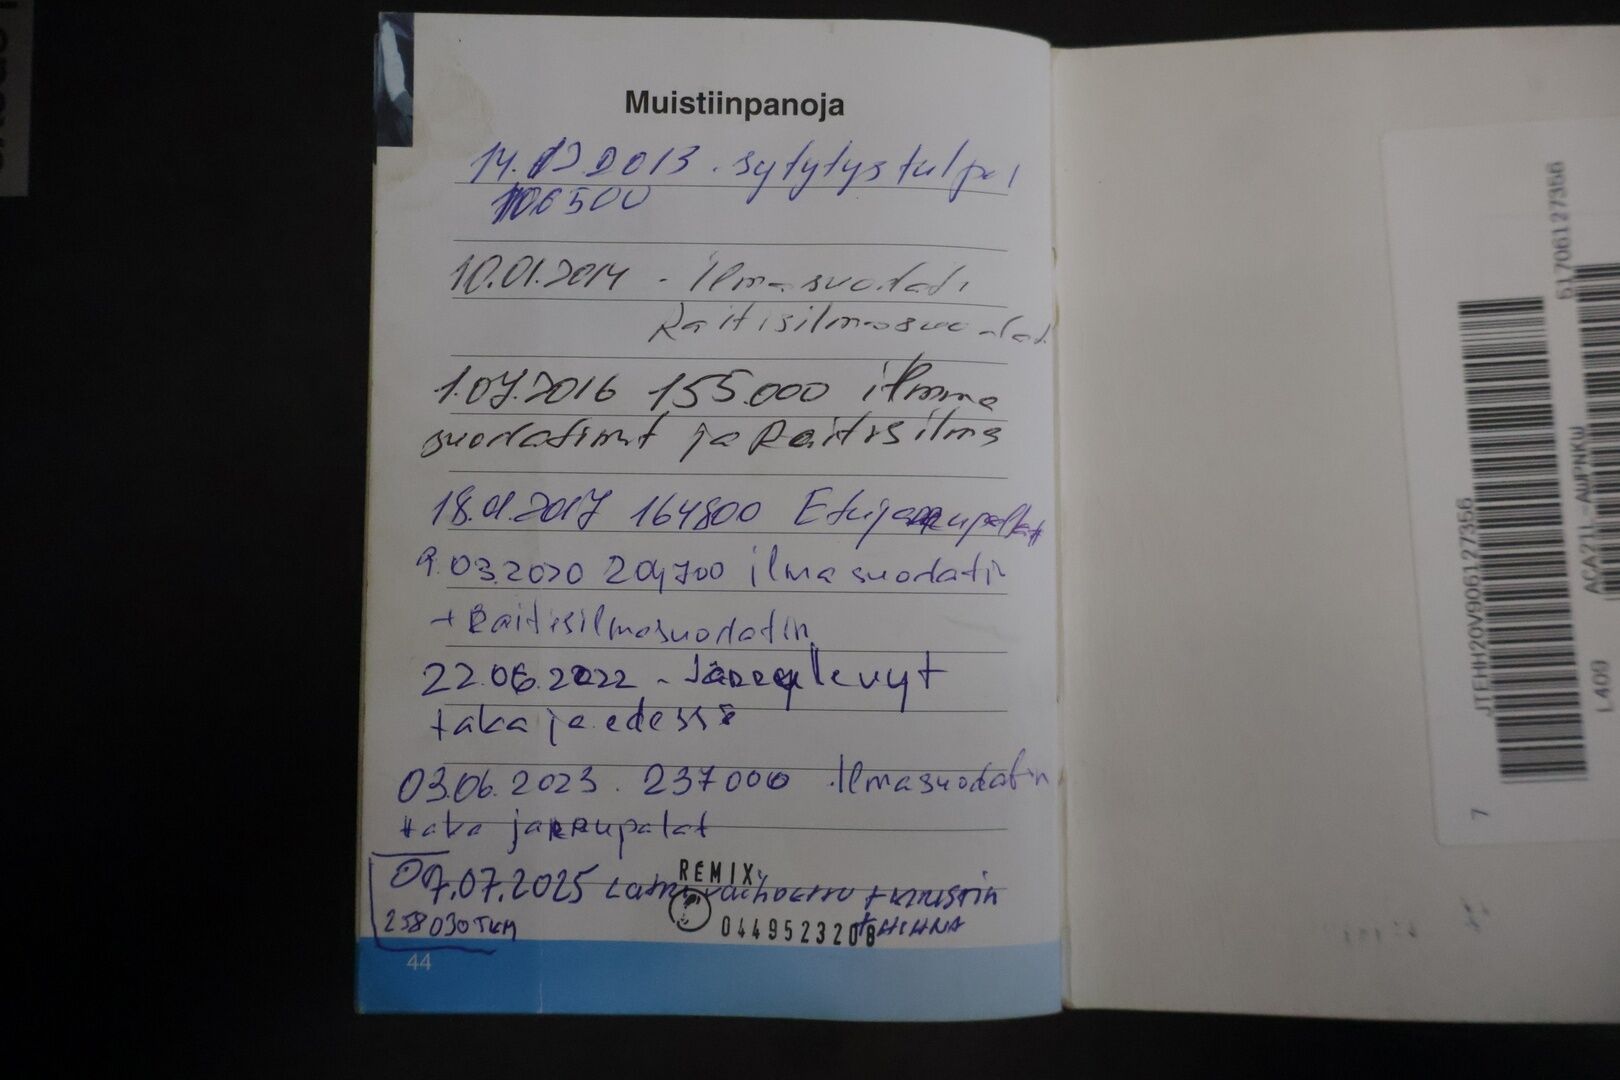 Muistiinpanoja
2013. sytytystulpat
106500
10.01.2014 - Ilmasuodati
Raitisilmasuodat
1.07.2016 155.000 ilmma
suodatimt ja Raitisilma
18.01.2017 164800 Etujarrupalat
9.03.2020 204700 ilmasuodatin
+ Raitisilmasuodatin
22.06.2022 - Jarrulevyt
taka ja edessä
03.06.2023. 237000 Ilmasuodatin
taka jarrupalat
07.07.2025 Laturi vaihdettu + KIRISTIN
258030TKM + HIHNA
REMIX
0449523208
44
JTEHH20V906127356
7
61706127356
ACA21L-AWPNKW
L409